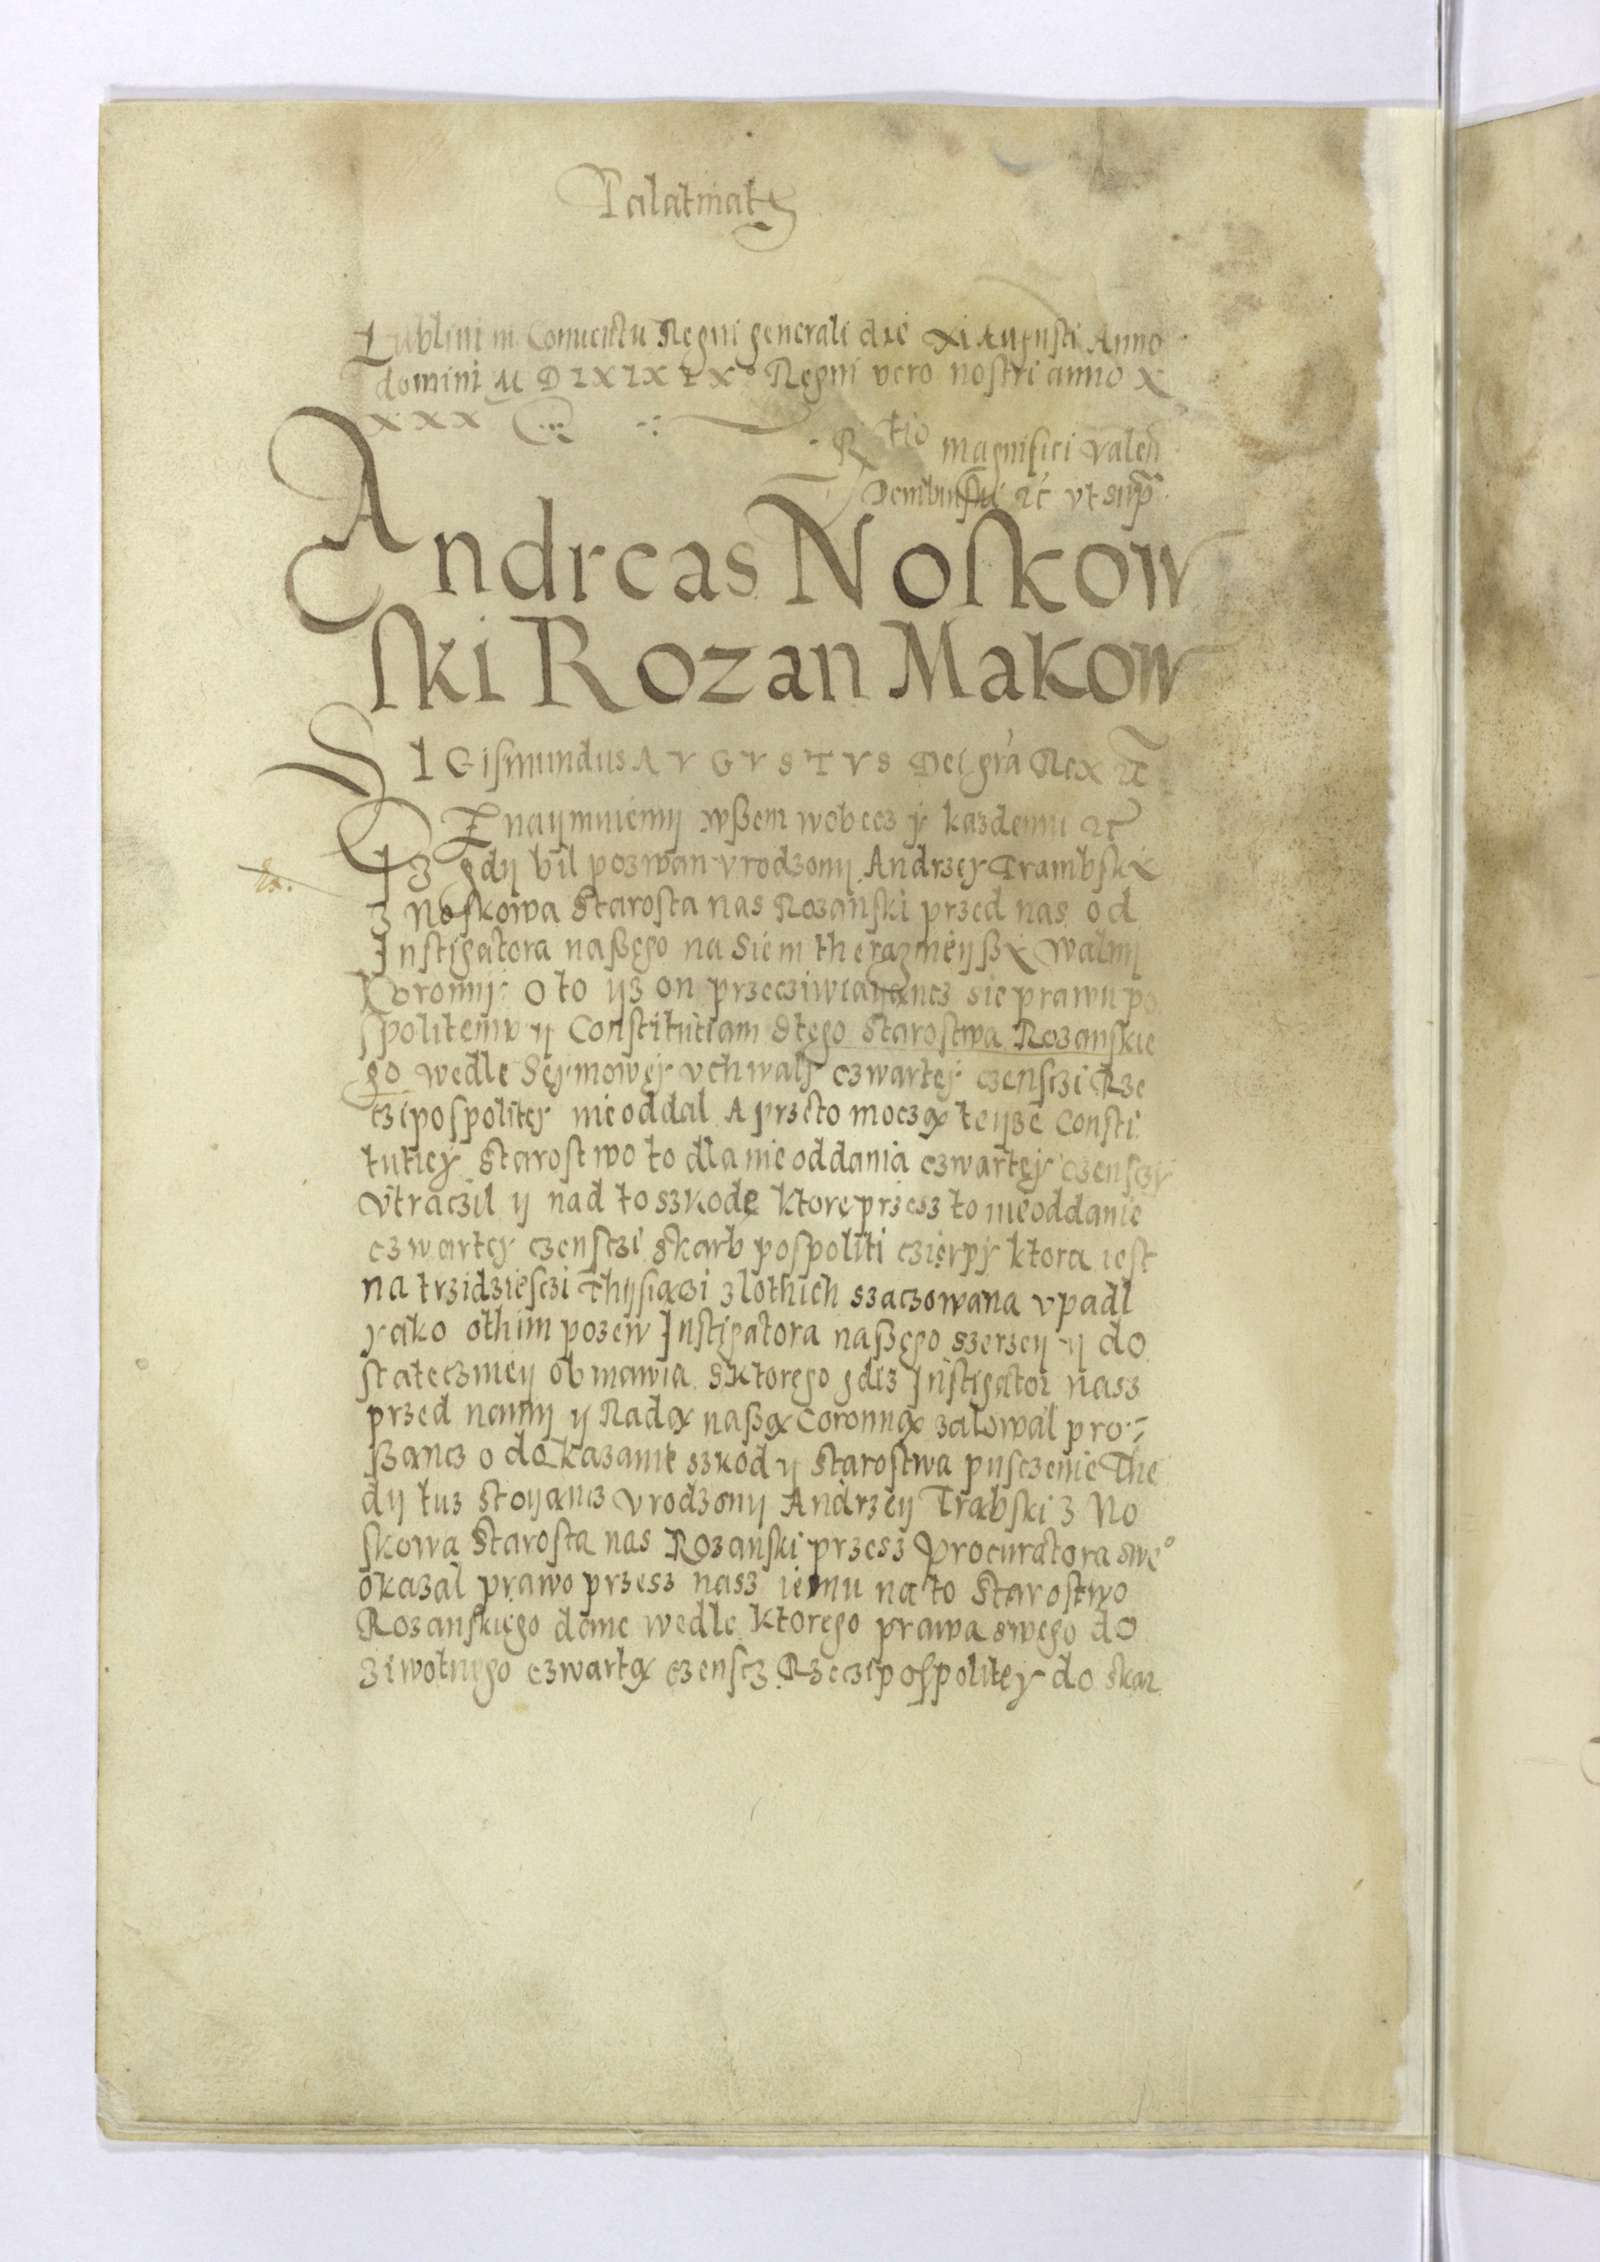 Palatinatus
Lublini in Conventu Regni generali die XI Augusti Anno
domini M D LXLXLX Regni vero nostri anno X
XXX
Rtio magnifici Valen
Dembinskii etc ut supra
Andreas Noskow
ski Rozan Makow
SIGismundus AVGVSTVS Dei gra Rex etc
Znaijmuiemij wßem wobecz ÿ kazdemu etc
Iz gdij bil pozwan vrodzonij Andrzeÿ Trambski
z Noskowa Starosta nas Rozanski przed nas od
Instigatora naßego na Siem therazneijßÿ walnij
Coronnij O to ijz on przecziwiaijancz sie prawu po
spolitemv ij Constitutiam stego Starostwa Rozanskie
go wedle Seÿmoweÿ vchwalÿ czwarteÿ czenschzi Rze
czipospoliteÿ nie oddal A przeto moczą teijze Consti
tutieÿ Starostwo to dla nie oddania czwarteÿ czensczÿ
vtraczil ij nad to szkode ktore przesz to nieoddanie
czwarteÿ czensczi skarb pospoliti czierpÿ ktora iest
na trzidziesczi Thijsiączi zlothich szaczowana vpadl
yako othim pozew Instigatora naßego szerzeij ij do
stateczneij obmawia sktorego gdisz Instigator nasz
przed nami ij Radą naßą Coronną zalował pro
ßancz o do kazanie szkod ij Starostwa pusczenie The
dij tusz stoijancz vrodzonij Andrzeij Trąbski z No
skowa Starosta nas Rozanski przesz Procuratora sweo
okazal prawo przesz nasz iemu na to Starostwo
Rozanskiego dane wedle ktorego prawa swego do
ziwotnego czwartą czenscz Rzeczipospoliteÿ do skar